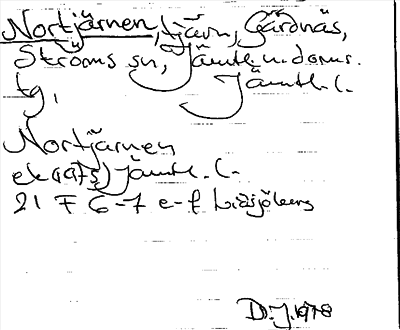 Nortjärnen, tjärn, Gärdnäs,
Ströms sn, Jämtl. n. doms.
tg, Jämtl. l.
Nortjärnen
ek (1975) Jämtl. l.
21 F 6-7 e-f
D.J. 1978